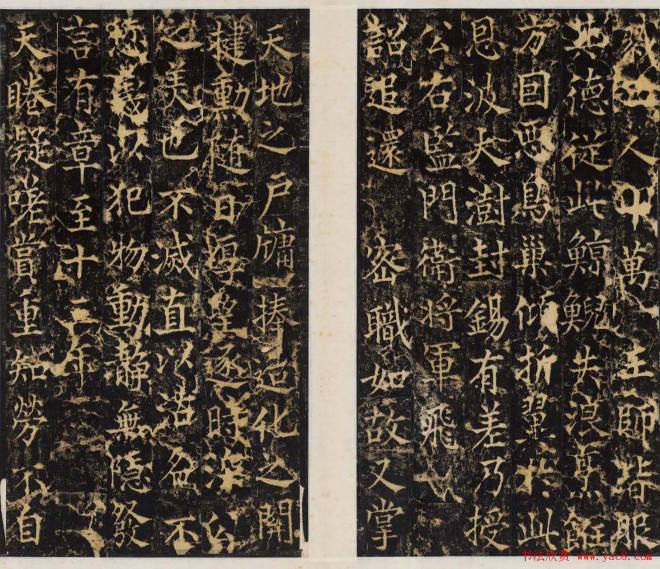 人中萬王師皆服
其德從此鯨鯢失浪梟
方圓惡鳥巢傾折翼於此
恩波大澍封錫有差乃授
公右監門衛將軍飛
詔追還 密職如故又掌
天地之戶牖捧造化之關
揵勳隨日厚望逐時深公
之美也不滅直以沽名不
義以犯物動靜無隱發
言有章至十二年
天睠疑賞重知勞不自
书法欣赏 www.yac8.com